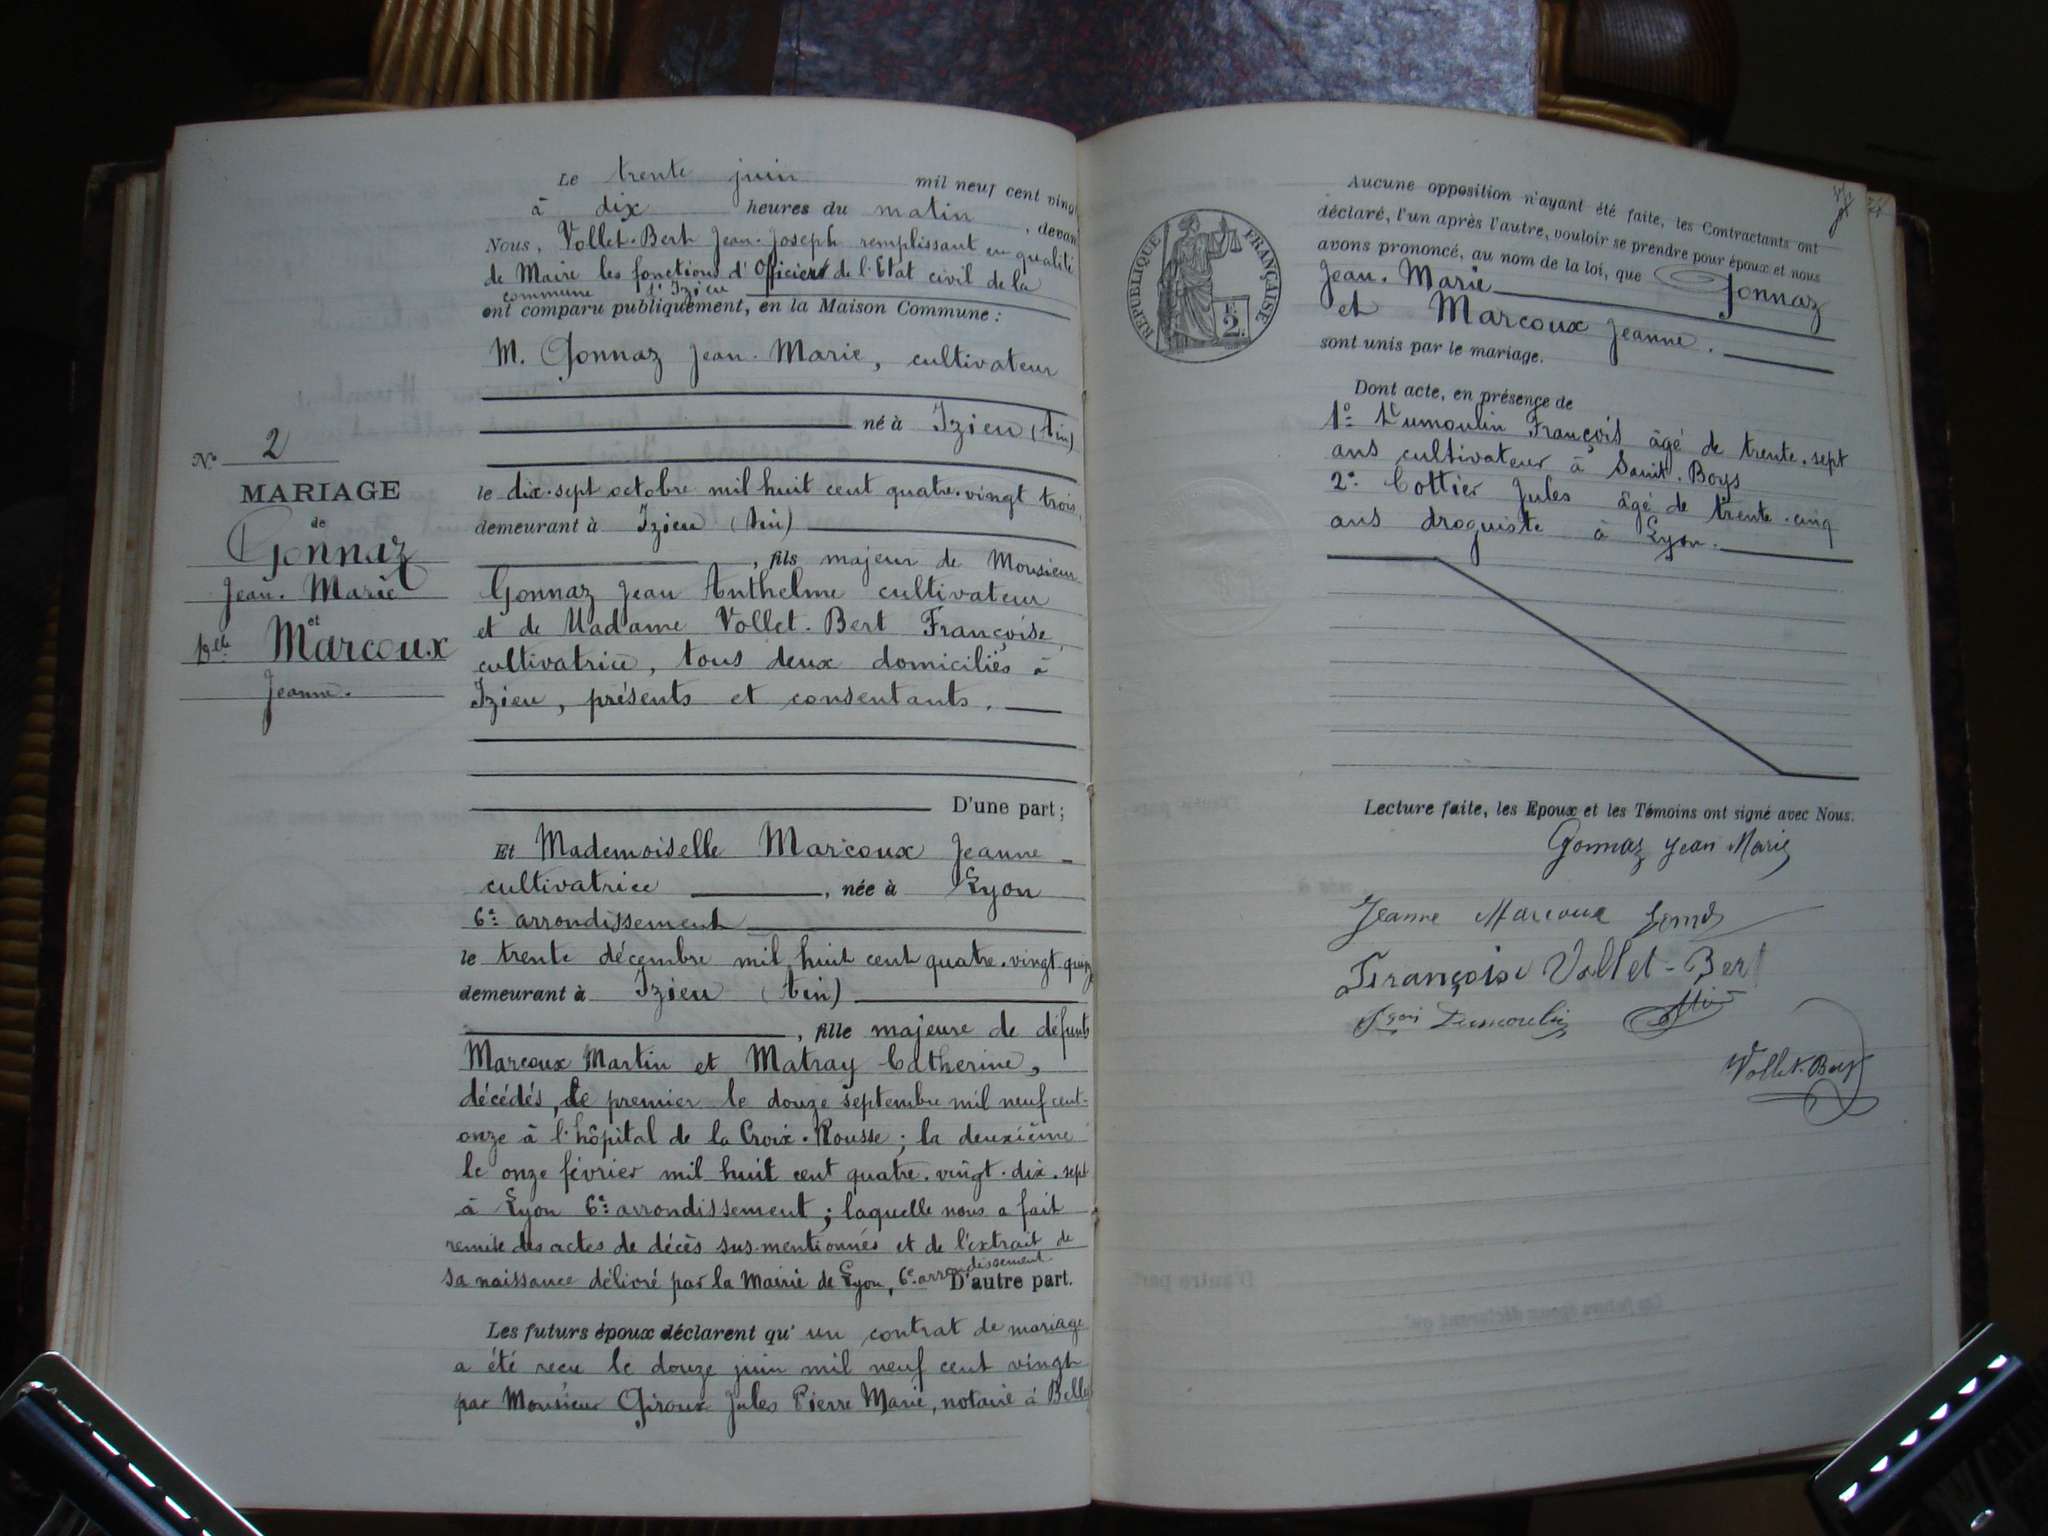 Le trente juin mil neuf cent ving
à dix heures du matin, devan
Nous, Vollet-Bert Jean-Joseph remplissant en qualité
de Maire les fonctions d'Officier de l'Etat civil de la
commune d'Izieu
ont comparu publiquement, en la Maison Commune :
M. Gonnaz Jean-Marie, cultivateur
né à Izieu (Ain)
le dix-sept octobre mil huit cent quatre-vingt trois,
demeurant à Izieu (Ain)
, fils majeur de Monsieur
Gonnaz Jean Anthelme cultivateur
et de Madame Vollet-Bert Françoise,
cultivatrice, tous deux domiciliés à
Izieu, présents et consentants.
D'une part ;
Et Mademoiselle Marcoux Jeanne
cultivatrice, née à Lyon
6e arrondissement
le trente décembre mil huit cent quatre-vingt-quinz
demeurant à Izieu (Ain)
, fille majeure de défunts
Marcoux Martin et Matray Catherine,
décédés, le premier le douze septembre mil neuf cent-
onze à l'hôpital de la Croix-Rousse ; la deuxième
le onze février mil huit cent quatre-vingt-dix-sept
à Lyon 6e arrondissement ; laquelle nous a fait
remise des actes de décès sus-mentionnés et de l'extrait de
sa naissance délivré par la Mairie de Lyon, 6e arrondissement D'autre part.
Les futurs époux déclarent qu'un contrat de mariage
a été recu le douze juin mil neuf cent vingt
par Monsieur Giroux Jules Pierre Marie, notaire à Belle
No 2
MARIAGE
de
Gonnaz
Jean-Marie
et
Delle Marcoux
Jeanne.
Aucune opposition n'ayant été faite, les Contractants ont
déclaré, l'un après l'autre, vouloir se prendre pour époux et nous
avons prononcé, au nom de la loi, que Gonnaz
Jean-Marie
et Marcoux Jeanne.
sont unis par le mariage.
Dont acte, en présence de
1° Dumoulin François âgé de trente-sept
ans cultivateur à Saint-Boys
2° Cottier Jules âgé de trente-cinq
ans droguiste à Lyon.
RÉPUBLIQUE FRANÇAISE
F.
2.
Lecture faite, les Epoux et les Témoins ont signé avec Nous.
Gonnaz Jean Marie
Jeanne Marcoux
Françoise Vollet-Bert
Fçois Dumoulin
Vollet-Bert